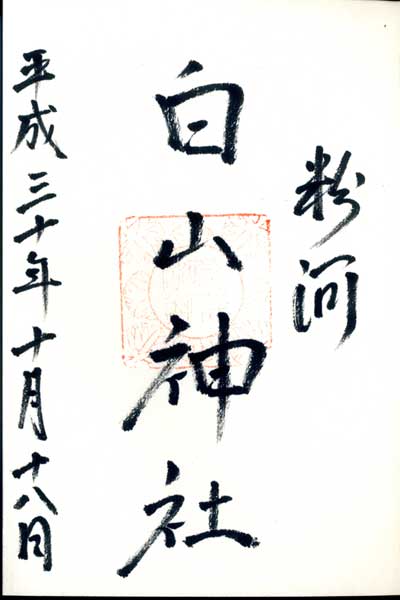 粉河
白山神社
平成三十年十月十八日